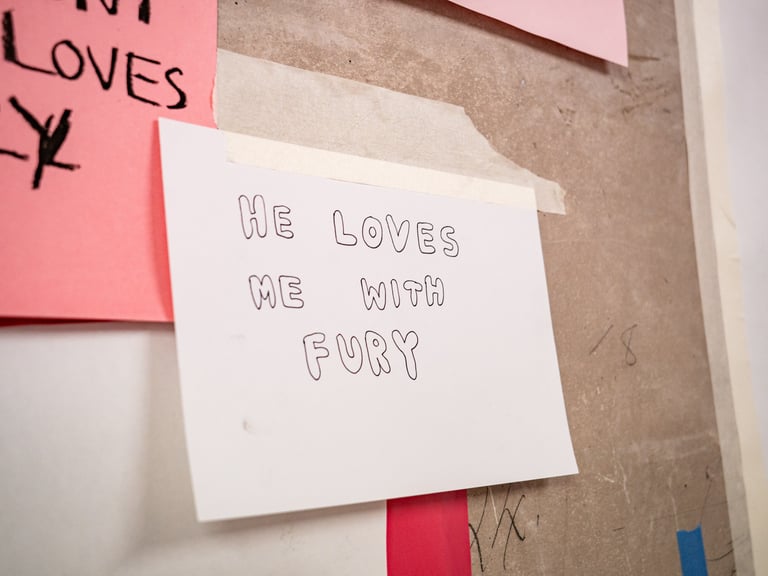 LOVES
HE LOVES
ME WITH
FURY